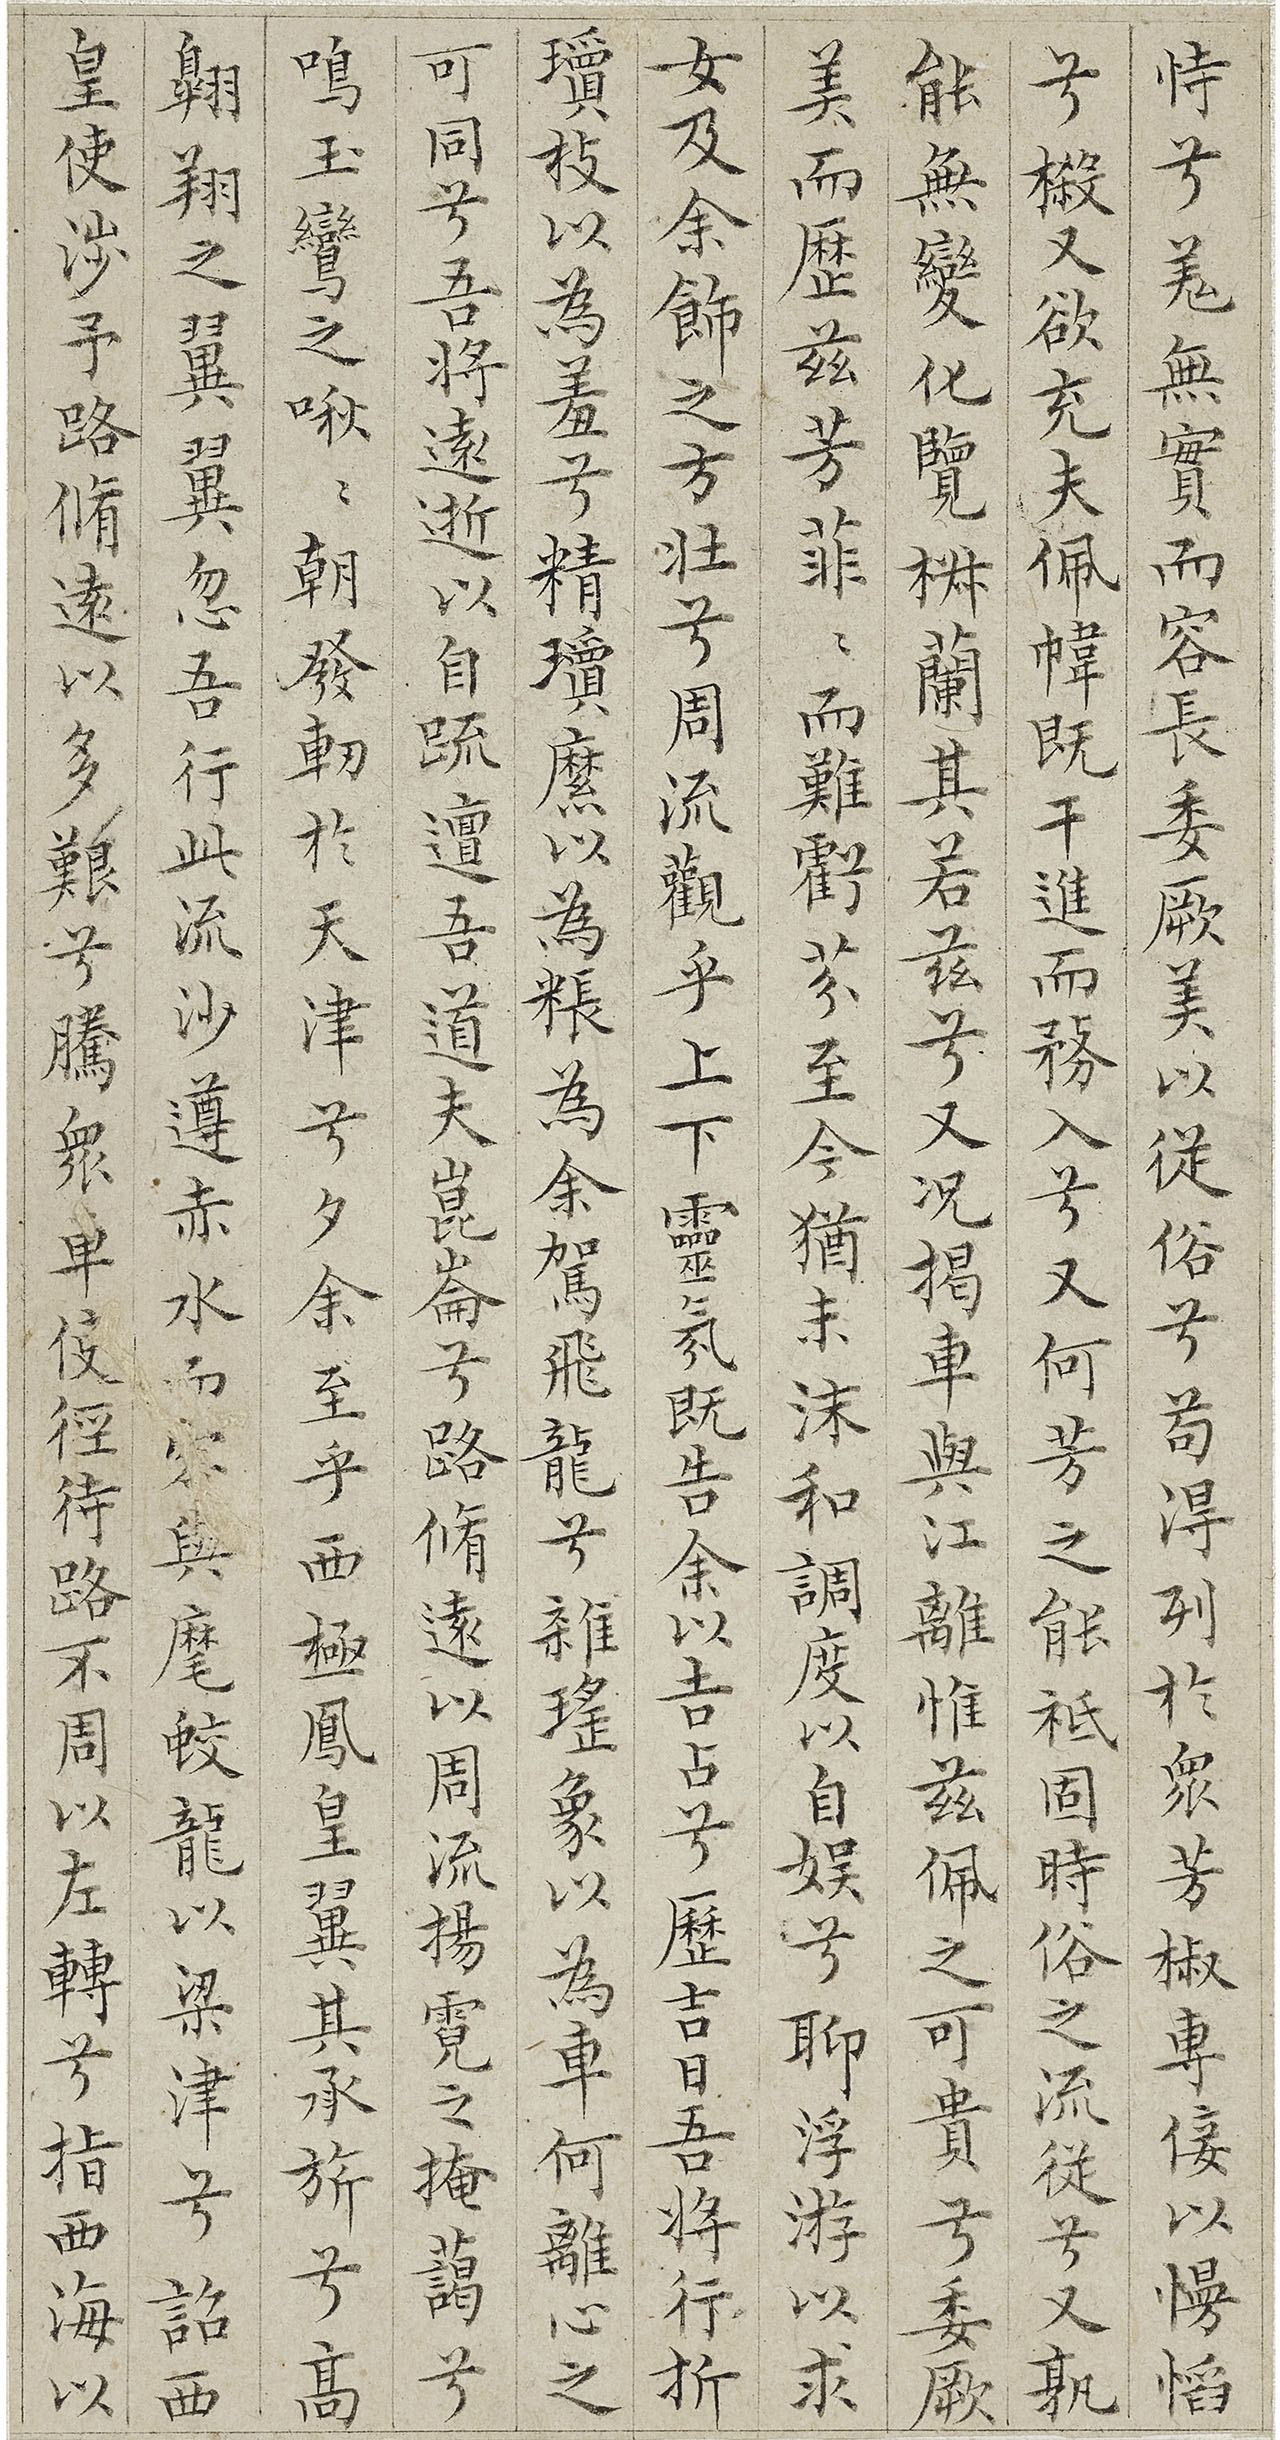 恃兮羌無實而容長委厥美以從俗兮苟得列於衆芳椒專佞以慢慆
兮樧又欲充夫佩幃既干進而務入兮又何芳之能祗固時俗之流從兮又孰
能無變化覽椒蘭其若茲兮又况揭車與江離惟茲佩之可貴兮委厥
美而歷茲芳菲〻而難虧芬至今猶未沬和調度以自娛兮聊浮游以求
女及余飾之方壯兮周流觀乎上下靈氛既告余以吉占兮歷吉日吾將行折
瓊枝以為羞兮精瓊爢以為粻為余駕飛龍兮雜瑤象以為車何離心之
可同兮吾將遠逝以自疏邅吾道夫崑崙兮路脩遠以周流揚霓之掩藹兮
鳴玉鸞之啾〻朝發軔於天津兮夕余至乎西極鳳皇翼其承旂兮高
翱翔之翼翼忽吾行此流沙遵赤水而容與麾蛟龍以梁津兮詔西
皇使涉予路脩遠以多艱兮騰衆車使徑待路不周以左轉兮指西海以